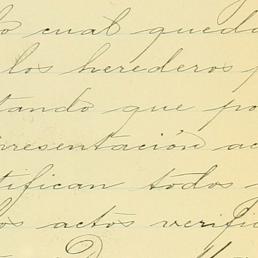 lo cual queda
los herederos p
tando que po
presentación ac
tifican todos
los actos verific